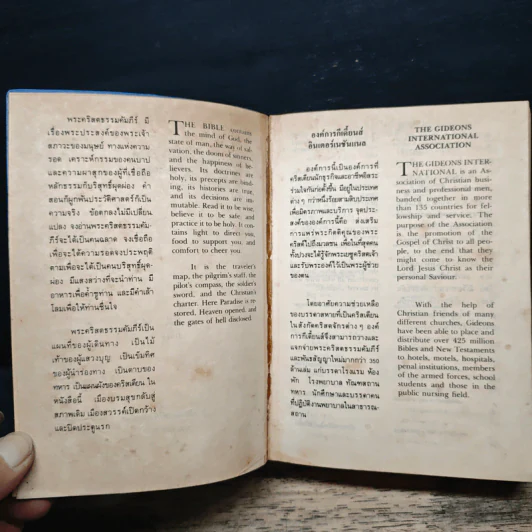 พระคริสตธรรมคัมภีร์ มี
เรื่องพระประสงค์ของพระเจ้า
สภาวะของมนุษย์ ทางแห่งความ
รอด เคราะห์กรรมของคนบาป
และความผาสุกของผู้ที่เชื่อถือ
หลักธรรมก็บริสุทธิ์ผุดผ่อง คำ
สอนก็ผูกพันประวัติศาสตร์ก็เป็น
ความจริง ข้อตกลงไม่มีเปลี่ยน
แปลง จงอ่านพระคริสตธรรมคัม-
ภีร์จะได้เป็นคนฉลาด จงเชื่อถือ
เพื่อจะได้ความรอดจงประพฤติ
ตามเพื่อจะได้เป็นคนบริสุทธิ์ผุด-
ผ่อง มีแสงสว่างที่จะนำท่าน มี
อาหารเพื่อค้ำชูท่าน และมีคำเล้า
โลมเพื่อให้ท่านชื่นใจ
พระคริสตธรรมคัมภีร์เป็น
แผนที่ของผู้เดินทาง เป็นไม้
เท้าของผู้แสวงบุญ เป็นเข็มทิศ
ของผู้นำร่องทาง เป็นดาบของ
ทหาร เป็นแผนผังของคริสเตียน ใน
หนังสือนี้ เมืองบรมสุขกลับสู่
สภาพเดิม เมืองสวรรค์เปิดกว้าง
และปิดประตูนรก
THE BIBLE contains
the mind of God, the
state of man, the way of sal-
vation, the doom of sinners,
and the happiness of be-
lievers. Its doctrines are
holy, its precepts are bind-
ing, its histories are true,
and its decisions are im-
mutable. Read it to be wise,
believe it to be safe, and
practice it to be holy. It con-
tains light to direct you,
food to support you and
comfort to cheer you.
It is the traveler's
map, the pilgrim's staff, the
pilot's compass, the soldier's
sword, and the Christian's
charter. Here Paradise is re-
stored, Heaven opened, and
the gates of hell disclosed.
องค์การกีเดี้ยนส์
อินเตอร์เนชั่นแนล
องค์การนี้เป็นองค์การที่
คริสเตียนนักธุรกิจและอาชีพอิสระ
ร่วมใจกันก่อตั้งขึ้น มีอยู่ในประเทศ
ต่างๆ กว่าหนึ่งร้อยสามสิบประเทศ
เพื่อมิตรภาพและบริการ จุดประ-
สงค์ขององค์การนี้คือ ส่งเสริม
การแพร่พระกิตติคุณของพระ
คริสต์ไปถึงมวลชน เพื่อในที่สุดคน
ทั้งปวงจะได้รู้จักพระเยซูคริสต์เจ้า
และรับพระองค์ไว้เป็นพระผู้ช่วย
ของตน
โดยอาศัยความช่วยเหลือ
ของบรรดาสหายที่เป็นคริสเตียน
ในสังกัดคริสตจักรต่างๆ องค์
การกีเดี้ยนส์จึงสามารถวางและ
แจกจ่ายพระคริสตธรรมคัมภีร์
และพันธสัญญาใหม่มากกว่า
ล้านเล่ม แก่บรรดาโรงแรม ห้อง
พัก โรงพยาบาล ทัณฑสถาน
ทหาร นักศึกษาและบรรดาคน
ที่ปฏิบัติงานพยาบาลในสาธารณ-
สถาน
THE GIDEONS
INTERNATIONAL
ASSOCIATION
THE GIDEONS INTER-
NATIONAL is an As-
sociation of Christian busi-
ness and professional men,
banded together in more
than 135 countries for fel-
lowship and service. The
purpose of the Association
is the promotion of the
Gospel of Christ to all peo-
ple, to the end that they
might come to know the
Lord Jesus Christ as their
personal Saviour.
With the help of
Christian friends of many
different churches, Gideons
have been able to place and
distribute over 425 million
Bibles and New Testaments
to hotels, motels, hospitals,
penal institutions, members
of the armed forces, school
students and those in the
public nursing field.